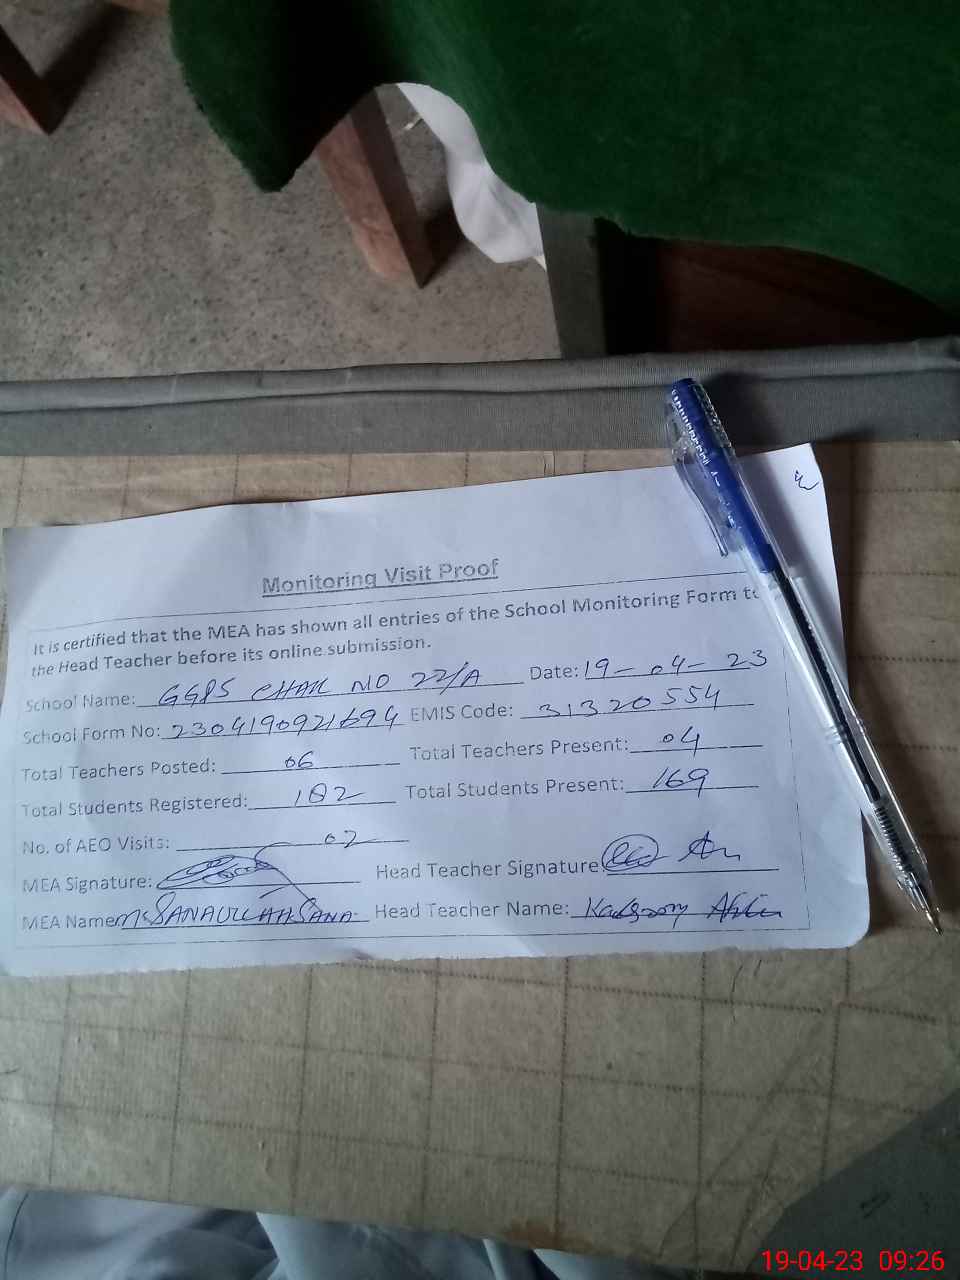 Monitoring Visit Proof
It is certified that the MEA has shown all entries of the School Monitoring Form to
the Head Teacher before its online submission.
School Name: GGPS CHAK NO 22/A Date: 19-04-23
School Form No: 2304190921694 EMIS Code: 31320554
Total Teachers Posted: 06 Total Teachers Present: 04
Total Students Registered: 182 Total Students Present: 169
No. of AEO Visits: 02
MEA Signature: Head Teacher Signature
MEA Name: M SANAULLAH SANA Head Teacher Name:
19-04-23 09:26